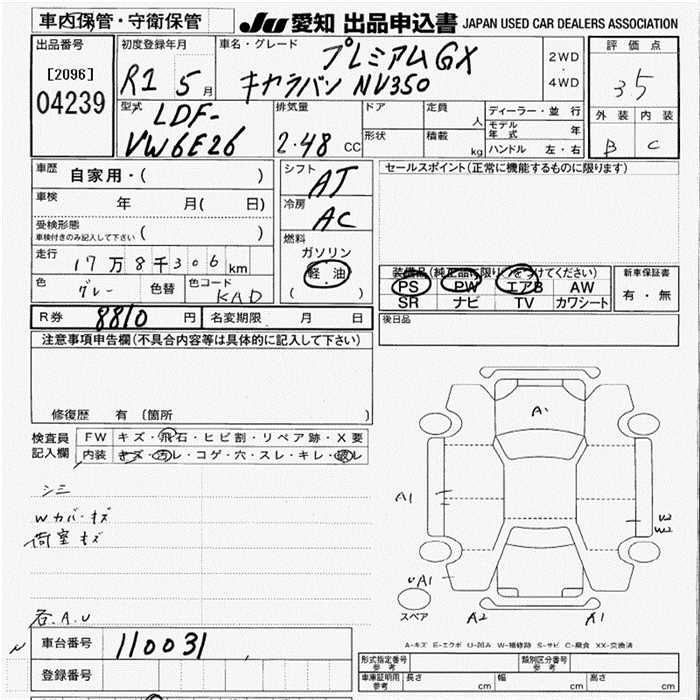 車内保管・守衛保管
JU 愛知 出品申込書 JAPAN USED CAR DEALERS ASSOCIATION
出品番号
[2096]
04239
初度登録年月
R1 5 月
車名・グレード
プレミアムGX
キャラバン NV350
2WD
・
4WD
評価点
3.5
外装 内装
B C
型式
LDF-
VW6E26
排気量
2.48 CC
ドア
形状
定員
人
積載
kg
ディーラー・並行
モデル年式 年
ハンドル 左・右
車歴
自家用・( )
車検 年 月( 日)
受検形態
車検付きのみ記入して下さい ( )
走行
17万8千306km
色
グレー
色替
色コード
KAD
シフト
AT
冷房
AC
燃料
ガソリン
軽油
( )
セールスポイント(正常に機能するものに限ります)
装備品(純正品に限り○をつけてください)
PS PW エアB AW
SR ナビ TV カワシート
新車保証書
有・無
R券 8810 円
名変期限 月 日
後日品
注意事項申告欄(不具合内容等は具体的に記入して下さい)
修復歴 有 (箇所 )
検査員
記入欄
FW キズ・飛石・ヒビ割・リペア跡・X要
内装 キズ・汚レ・コゲ・穴・スレ・キレ・破レ
シミ
Wカバーキズ
荷室キズ
各.A.U
A1
A1
U2
W2
UA1
スペア
A2
A1
A-キズ E-エクボ U-凹み W-補修跡 S-サビ C-腐食 XX-交換済
車台番号
110031
登録番号
形式指定番号
参考
類別区分番号
参考
車庫証明用
参考
長さ cm
幅 cm
高さ cm